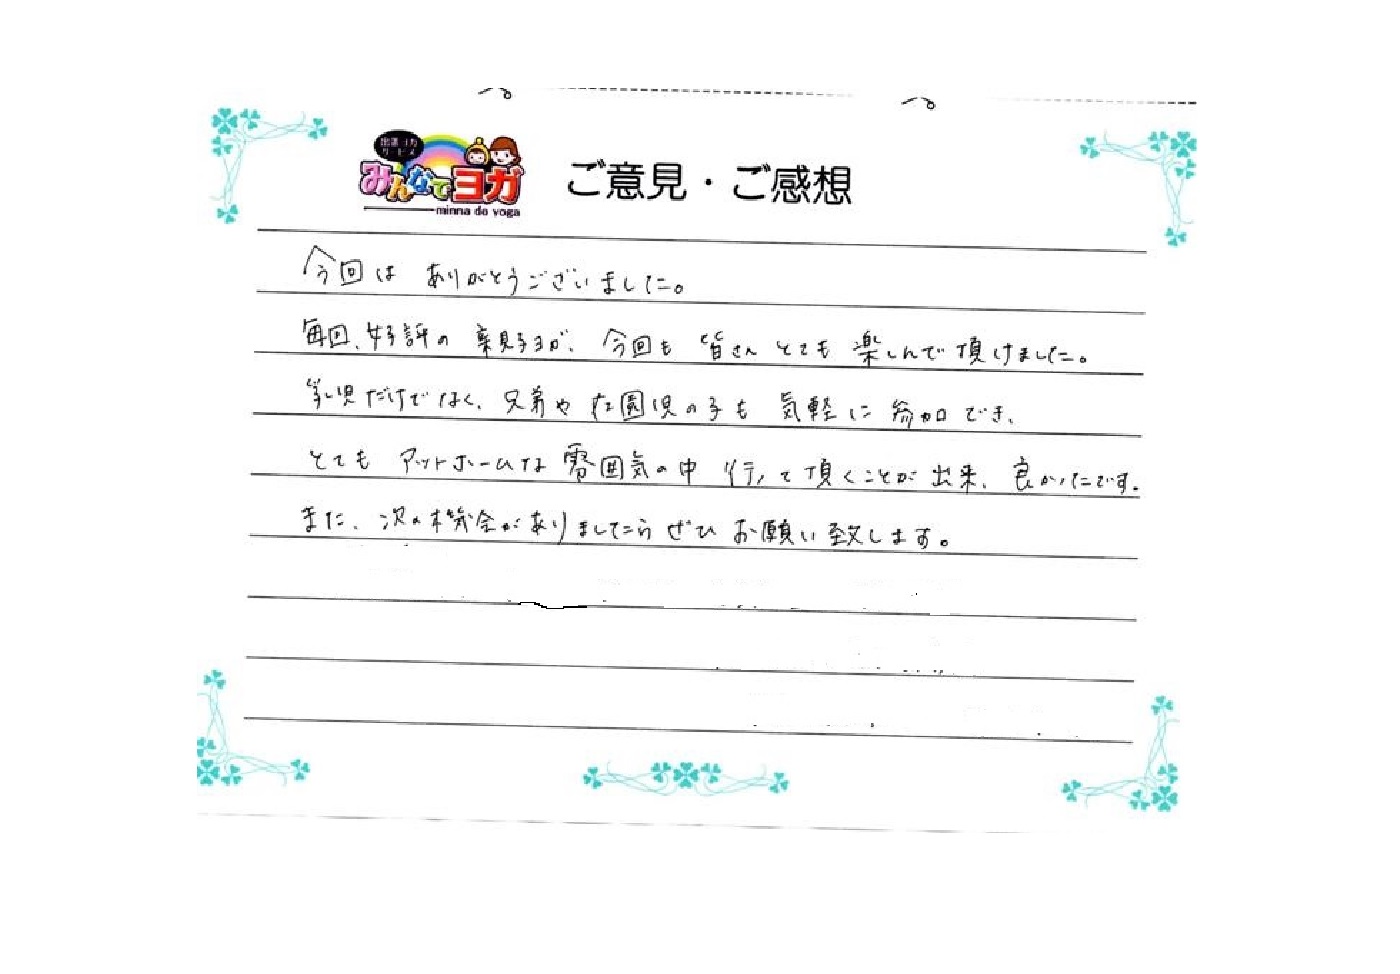 出張ヨガ
サービス
みんなでヨガ
minna de yoga
ご意見・ご感想
今回は ありがとうございました。
毎回、好評の 親子ヨガ、今回も 皆さん とても 楽しんで 頂けました。
乳児だけでなく、兄弟や 在園児の子も 気軽に 参加 でき、
とても アットホームな 雰囲気の中 行って頂くことが 出来、良かったです。
また、次の機会がありましたら ぜひ お願い致します。